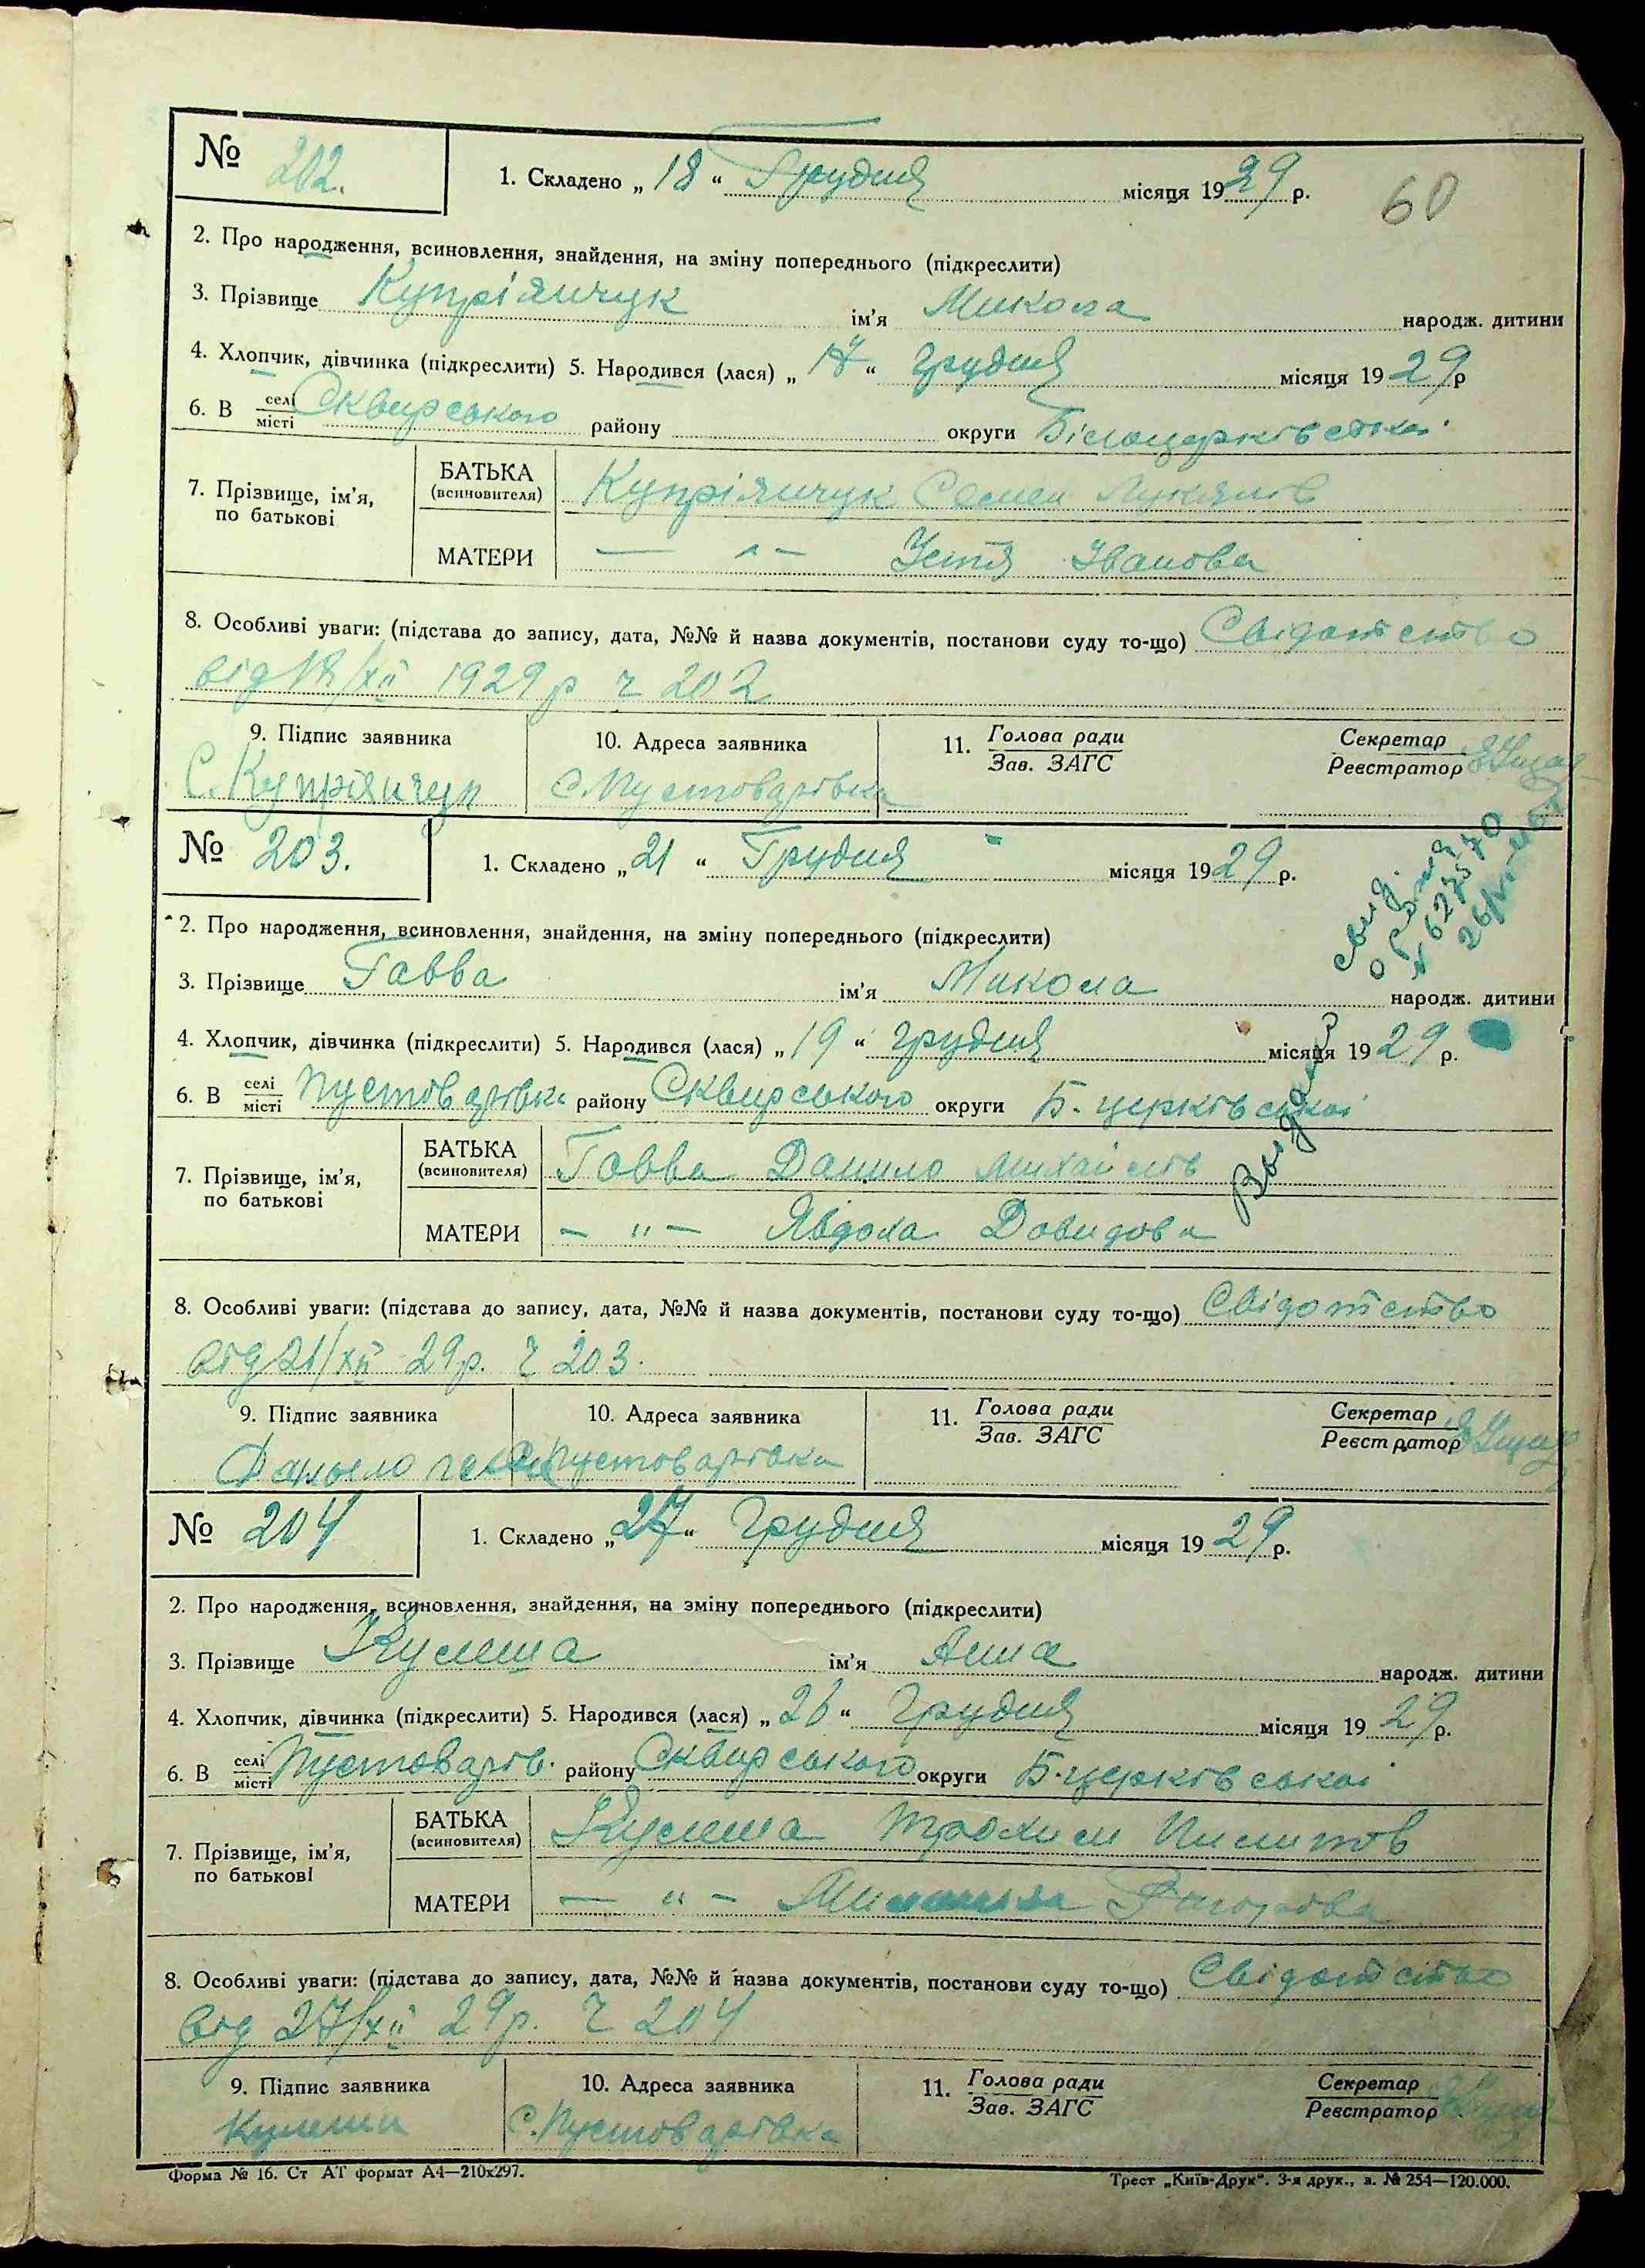 № 202. 1. Складено „18“ Грудня місяця 1929 р. 60
2. Про народження, всиновлення, знайдення, на зміну попереднього (підкреслити)
3. Прізвище Купріянчук ім'я Микола народж. дитини
4. Хлопчик, дівчинка (підкреслити) 5. Народився (лася) „17“ грудня місяця 1929 р
6. В селі місті Сквирського району округи Білоцерківської
7. Прізвище, ім'я, по батькові
БАТЬКА (всиновителя) Купріянчук Семен Лукянов
МАТЕРИ — " — Устя Іванова
8. Особливі уваги: (підстава до запису, дата, №№ й назва документів, постанови суду то-що) Свідотство
від 18/XII 1929 р ч 202
9. Підпис заявника 10. Адреса заявника 11. Голова ради Зав. ЗАГС Секретар Реєстратор
С. Купріянчук С. Пустоварівка
№ 203. 1. Складено „21“ Грудня місяця 1929 р.
свид.
о
№ 627570
2. Про народження, всиновлення, знайдення, на зміну попереднього (підкреслити)
3. Прізвище Гавва ім'я Микола народж. дитини
4. Хлопчик, дівчинка (підкреслити) 5. Народився (лася) „19“ грудня місяця 1929 р.
6. В селі місті Пустоварівка району Сквирського округи Б. церківської
7. Прізвище, ім'я, по батькові
БАТЬКА (всиновителя) Гавва Данило Михайлов
МАТЕРИ — " — Явдоха Довидова
8. Особливі уваги: (підстава до запису, дата, №№ й назва документів, постанови суду то-що) Свідотство
від 21/XII 29 р. ч 203.
9. Підпис заявника 10. Адреса заявника 11. Голова ради Зав. ЗАГС Секретар Реєстратор
Даныло С. Пустоварівка
№ 204 1. Складено „27“ Грудня місяця 1929 р.
2. Про народження, всиновлення, знайдення, на зміну попереднього (підкреслити)
3. Прізвище Кулеша ім'я Анна народж. дитини
4. Хлопчик, дівчинка (підкреслити) 5. Народився (лася) „26“ Грудня місяця 1929 р.
6. В селі місті Пустоварів. району Сквирського округи Б. церківської
7. Прізвище, ім'я, по батькові
БАТЬКА (всиновителя) Кулеша Трохим Пилипов
МАТЕРИ — " —
8. Особливі уваги: (підстава до запису, дата, №№ й назва документів, постанови суду то-що) Свідотство
від 27/XII 29 р. ч 204
9. Підпис заявника 10. Адреса заявника 11. Голова ради Зав. ЗАГС Секретар Реєстратор
Кулеша С. Пустоварівка
Форма № 16. Ст АТ формат А4—210х297. Трест „Київ-Друк“. 3-я друк., з. № 254—120.000.